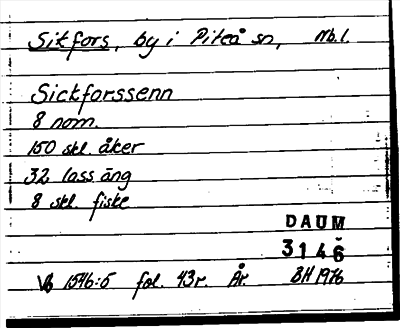 Sikfors, by i Piteå sn, Nb.l.
Sickforssenn
8 nom.
150 skl. åker
32 lass äng
8 skl. fiske
DAUM
3146
Vb 1546:5 fol. 43r. År. BH 1976